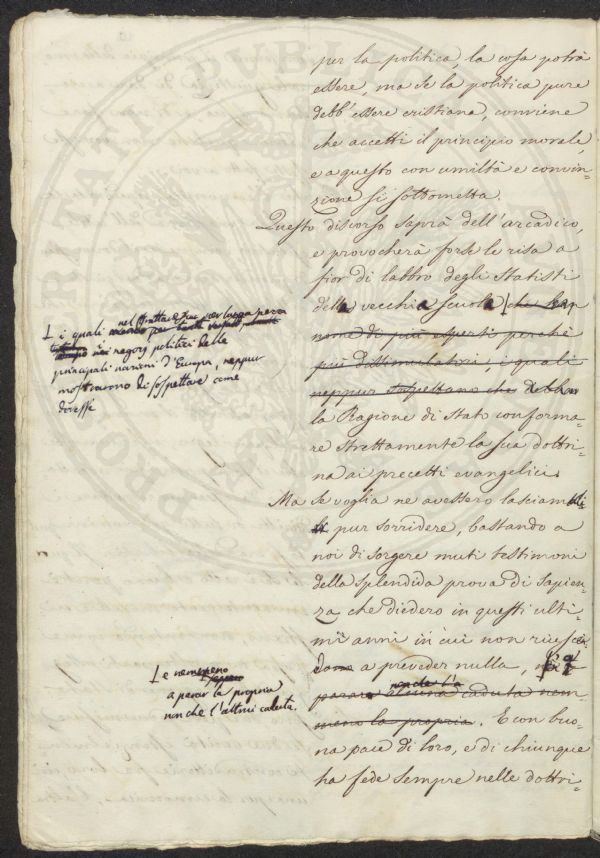 per la politica, la cosa potrà
essere, ma se la politica pure
debb'essere cristiana, conviene
che accetti il principio morale,
e a questo con umiltà e convin=
zione si sottometta.
Questo discorso saprà dell'arcadico,
e provocherà forse le risa a
fior di labbro degli statisti
della vecchia scuola che han
nome di più esperti perchè
più dissimulatori, i quali
neppur sospettano che debba
la Ragione di Stato conforma=
re strettamente la sua dottri=
na ai precetti evangelici.
Ma se voglia ne avessero lasciamoli
pur sorridere, bastando a
noi di sorgere muti testimoni
della splendida prova di sapien=
za che diedero in questi ulti=
mi anni in cui non riusci
a preveder nulla,
parare alcuna caduta nem=
non che l'a
meno la propria. E con buo=
na pace di loro, e di chiunque
ha fede sempre nelle dottri=
i quali nel trattare per lunga pezza
i negozj politici delle
principali nazioni d'Europa, neppur
mostrarono di sospettare come
dovesse
e nemmeno
a parar la propria
non che l'altrui caduta.
PVBLICA